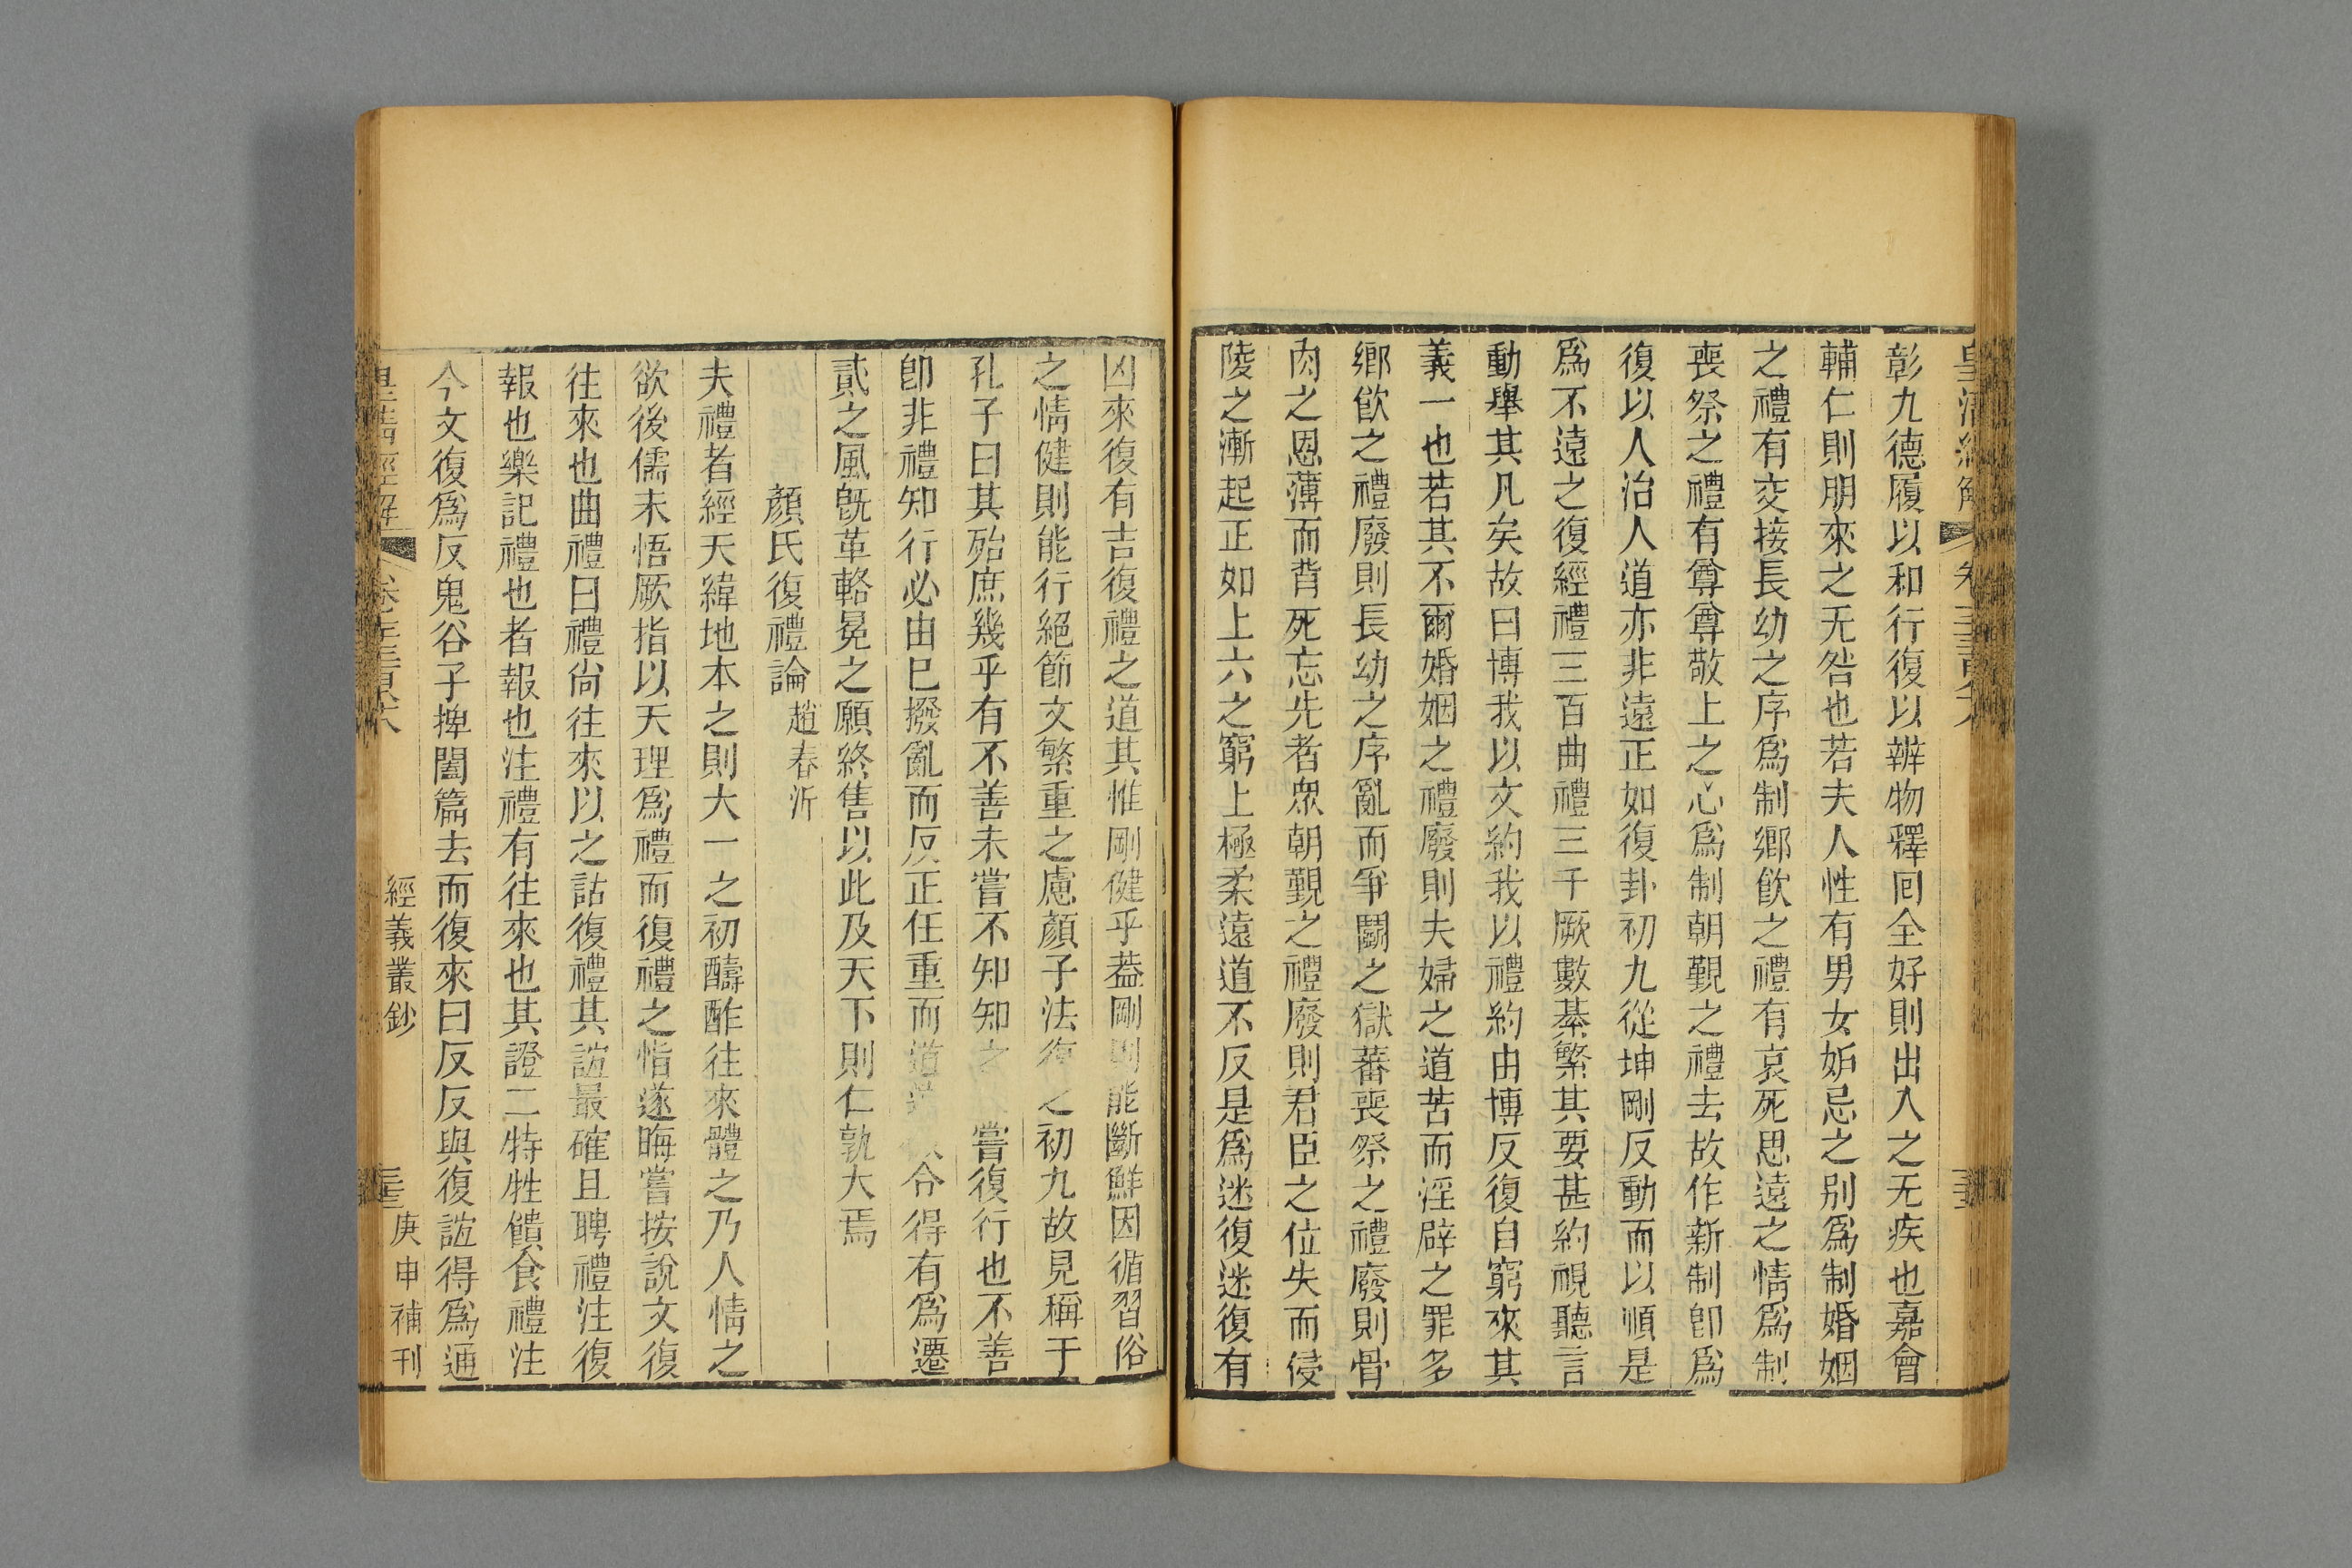 彰九德履以和行復以辨物釋回全好則出入之无疾也嘉會
輔仁則朋來之无咎也若夫人性有男女妒忌之别爲制婚姻
之禮有交接長幼之序爲制鄉飲之禮有哀死思遠之情爲制
喪祭之禮有尊尊敬上之心爲制朝覲之禮去故作新制卽爲
復以人治人道亦非遠正如復卦初九從坤剛反動而以順是
爲不遠之復經禮三百曲禮三千厥數綦繁其要甚約視聽言
動舉其凡矣故曰博我以文約我以禮約由博反復自窮來其
義一也若其不爾婚姻之禮廢則夫婦之道苦而淫辟之罪多
鄉飲之禮廢則長幼之序亂而爭鬭之獄蕃喪祭之禮廢則骨
肉之恩薄而背死忘先者眾朝覲之禮廢則君臣之位失而侵
陵之漸起正如上六之窮上極柔遠道不反是爲迷復迷復有
凶來復有吉復禮之道其惟剛健乎葢剛則能斷鮮因循習俗
之情健則能行絕節文繁重之慮顏子法復之初九故見稱于
孔子曰其殆庶幾乎有不善未嘗不知知之 嘗復行也不善
卽非禮知行必由巳撥亂而反正任重而道 令得有爲遷
貳之風旣革輅冕之願終售以此及天下則仁孰大焉
顏氏復禮論 趙春沂
夫禮者經天緯地本之則大一之初醻酢往來體之乃人情之
欲後儒未悟厥指以天理爲禮而復禮之恉遂晦嘗按說文復
往來也曲禮曰禮尙往來以之詁復禮其誼最確且聘禮注復
報也樂記禮也者報也注禮有往來也其證二特牲饋食禮注
今文復爲反鬼谷子捭闔篇去而復來曰反反與復誼得爲通
皇清經解 卷一千三百八十八 經義叢鈔 三三 庚申補刊